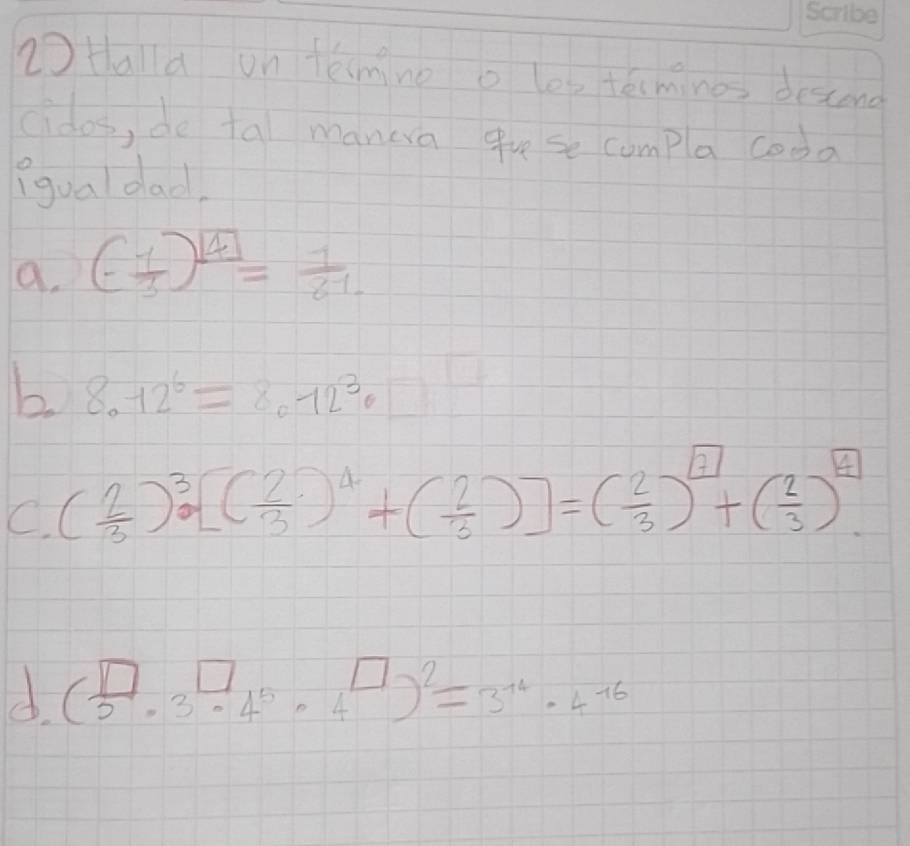 Scribe
2) Halla un término o los términos descono
cidos, de tal manera que se cumpla cada
igualdad.
a. (-1/3)^4 = 1/81.
b. 8 · 12^6 = 8 · 12^3 · □^□
c. (2/3)^3 · [(2/3)^4 + (2/3)] = (2/3)^7 + (2/3)^4.
d. (3^□ · 3^□ · 4^5 · 4^□)^2 = 3^14 · 4^16